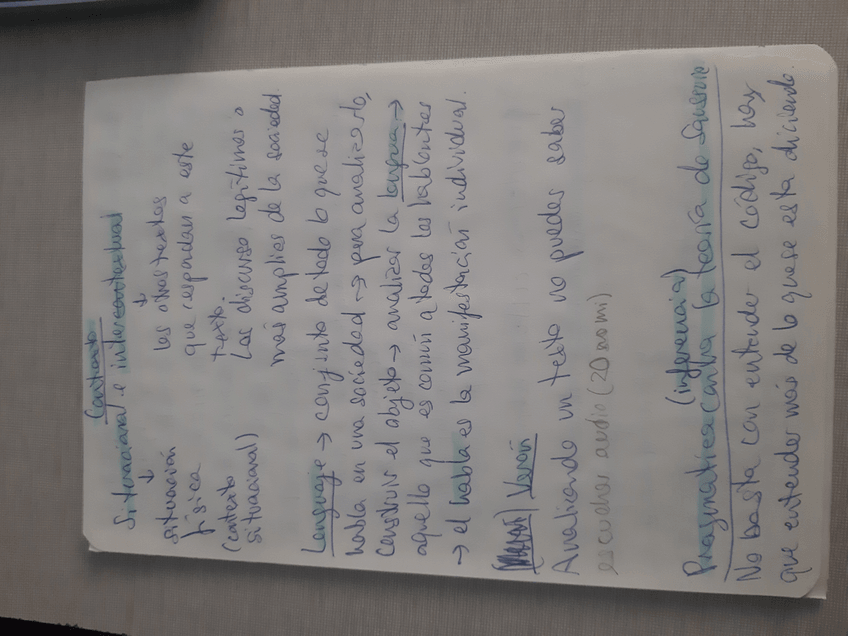 Contexto
Situacional e intercontextual
↓ ↓
situación
física
(contexto
situacional)
los otros textos
que respondan a este
texto.
Los discurso legítimos o
más amplios de la sociedad
Lenguaje → conjunto de todo lo que se
habla en una sociedad → para analizarlo,
construir el objeto → analizar la lengua →
aquello que es común a todos los hablantes
→ el habla es la manifestación individual.
Verón
Analizando un texto no puedes saber
escuchar audio (20
(inferencia)
Pragmática contra la teoría de Saussure
No basta con entender el código, hay
que entender más de lo que se esta diciendo.